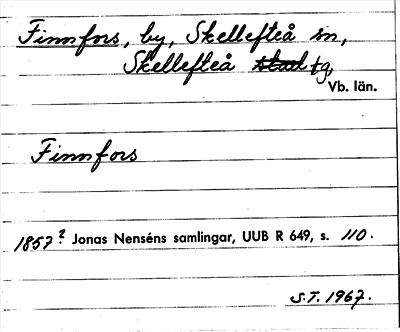 Finnfors, by, Skellefteå sn,
Skellefteå stad tg,
Vb. län.
Finnfors
1857? Jonas Nenséns samlingar, UUB R 649, s. 110.
S.T. 1967.